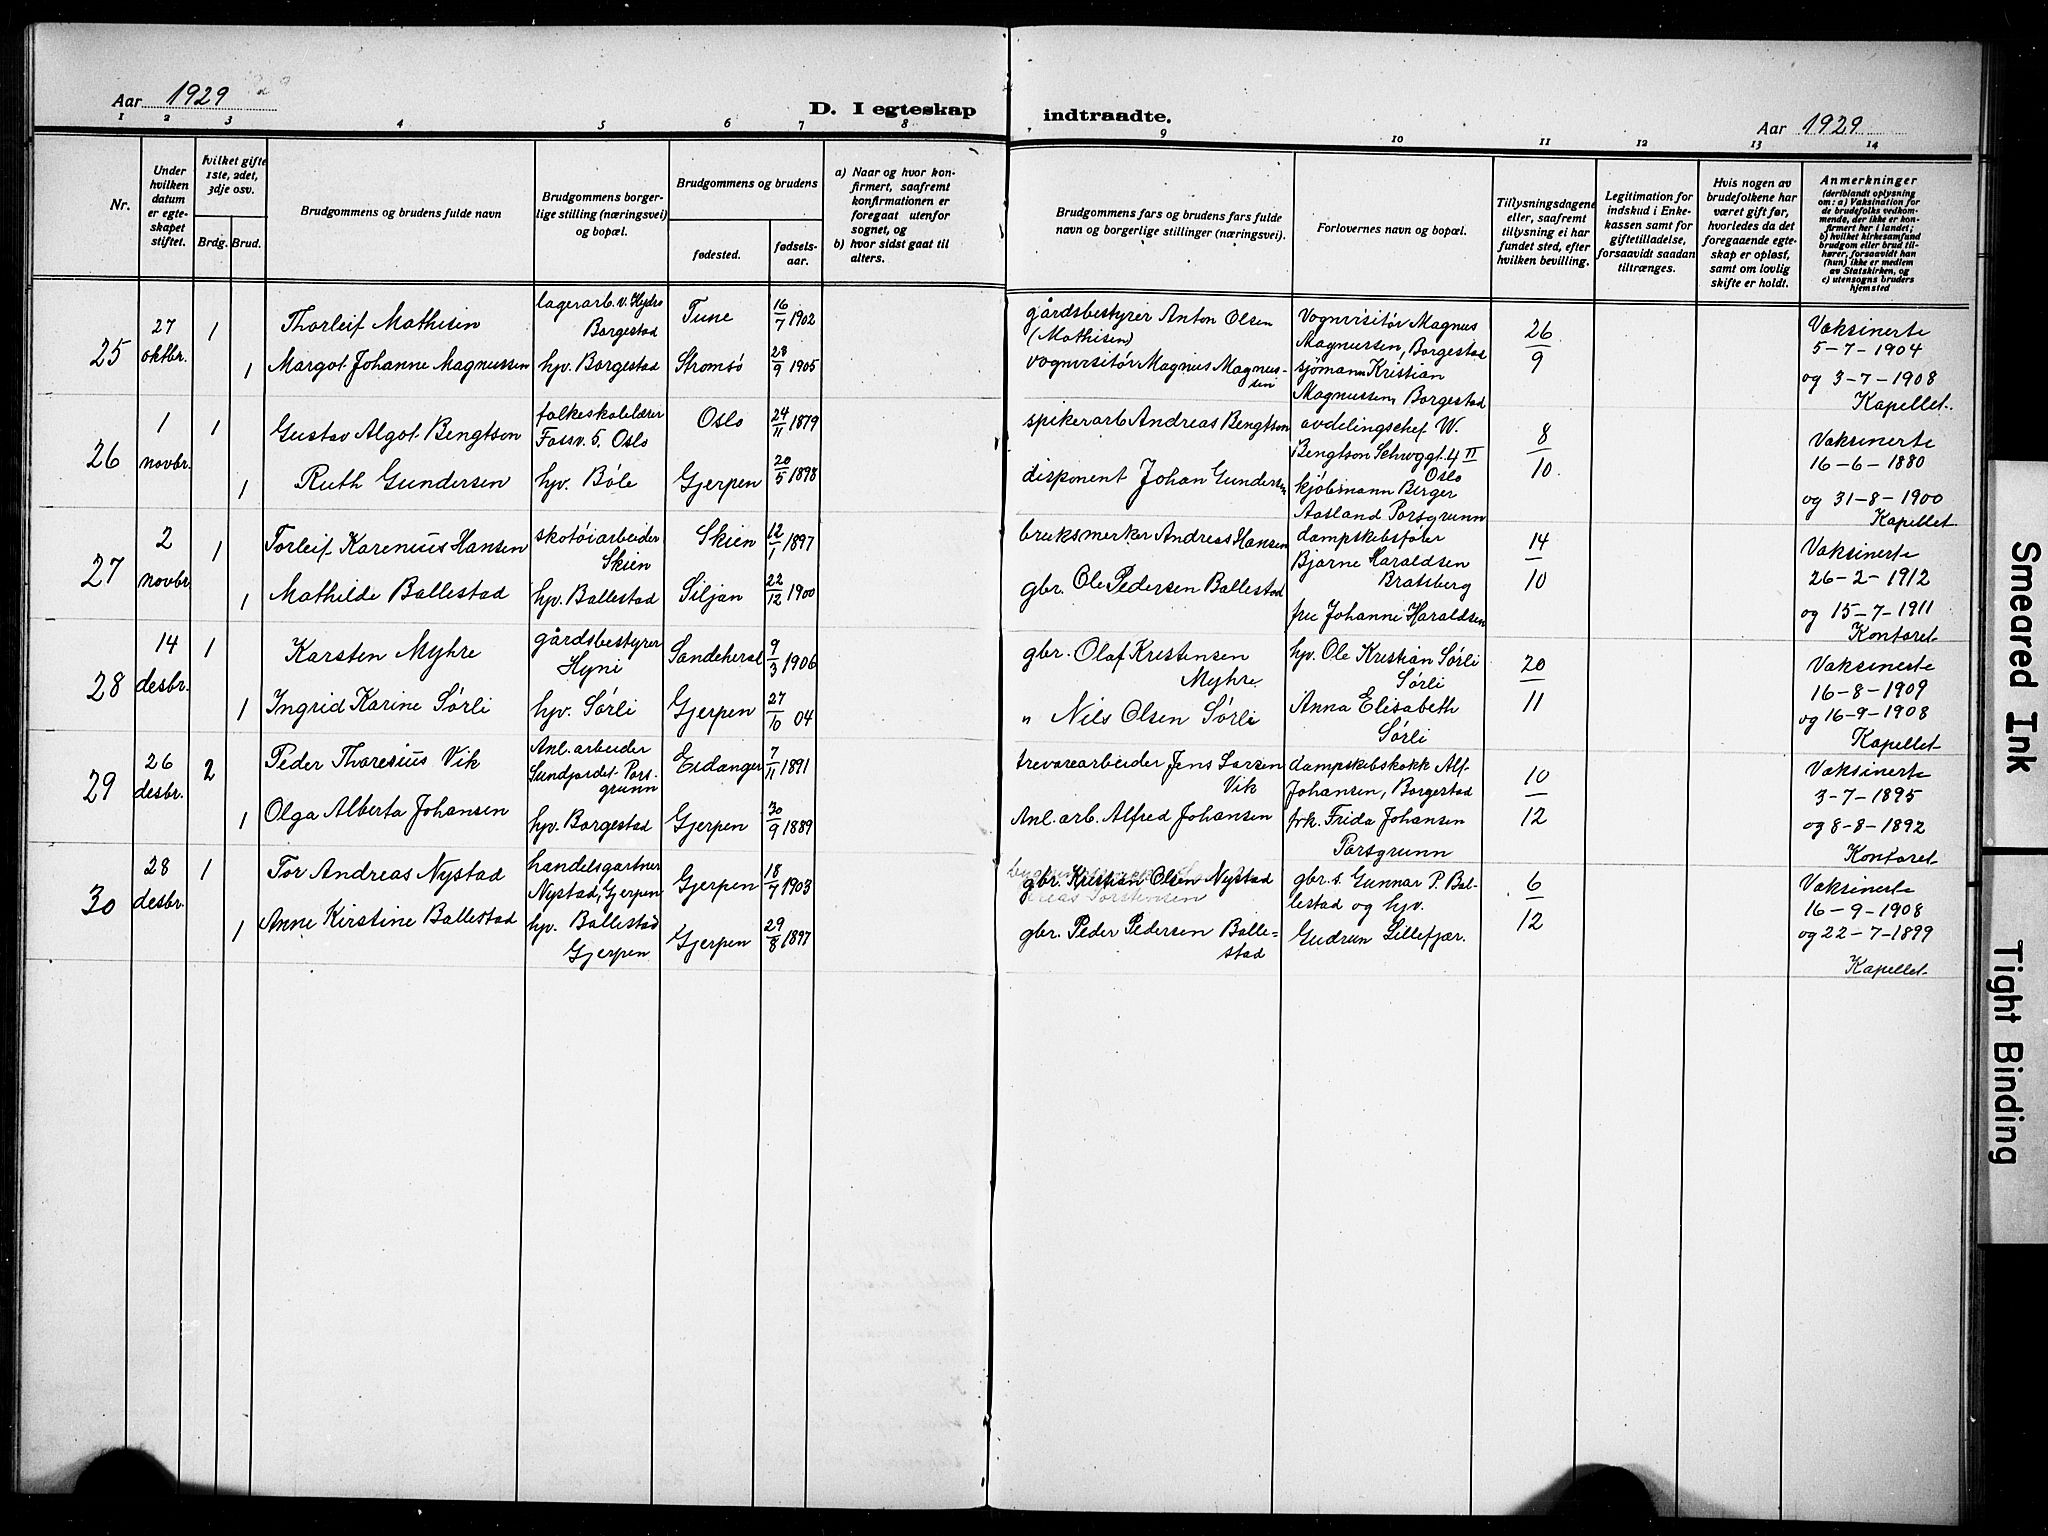 Aar 1929
D. I egteskap
indtraadte.
Aar 1929
1 2 3 4 5 6 7 8
9 10 11 12 13 14
Nr.
Under hvilken datum er egteskapet stiftet.
Hvilket gifte 1ste, 2det, 3dje osv.
Brdg. Brud.
Brudgommens og brudens fulde navn
Brudgommens borgerlige stilling (næringsvei) og bopæl.
Brudgommens og brudens
fødested.
fødselsaar.
a) Naar og hvor konfirmert, saafremt konfirmationen er foregaat utenfor sognet, og
b) hvor sidst gaat til alters.
Brudgommens fars og brudens fars fulde navn og borgerlige stillinger (næringsvei).
Forlovernes navn og bopæl.
Tillysningsdagene eller, saafremt tillysning ei har fundet sted, efter hvilken bevilling.
Legitimation for indskud i Enkekassen samt for giftetilladelse, forsaavidt saadan tiltrænges.
Hvis nogen av brudefolkene har været gift før, hvorledes da det foregaaende egteskap er opløst, samt om lovlig skifte er holdt.
Anmerkninger
(deriblandt oplysning om: a) Vaksination for de brudefolks vedkommende, der ikke er konfirmert her i landet; b) hvilket kirkesamfund brudgom eller brud tilhører, forsaavidt han (hun) ikke er medlem av Statskirken, og c) utensogns bruders hjemsted
25
27 oktbr.
1
Thorleif Mathisen
lagerarb. v. Hydro Borgestad
Tune
16/7 1902
gårdsbestyrer Anton Olsen (Mathisen)
Vognvisitør Magnus Magnussen, Borgestad
26/9
Vaksinerte
5-7-1904
1
Margot Johanne Magnussen
hjv. Borgestad
Strømsø
28/9 1905
vognvisitør Magnus Magnussen
sjømann Kristian Magnussen, Borgestad
og 3-7-1908
Kapellet.
26
1 novbr.
1
Gustav Algot Bengtson
folkeskolelærer
Fossv. 5. Oslo
Oslo
24/11 1879
spikerarb Andreas Bengtson
avdelingschef W. Bengtson Schwggt. 4 II Oslo
8/10.
Vaksinerte
16-6-1880
1
Ruth Gundersen
hjv. Bøle
Gjerpen
20/5 1898
disponent Johan Gundersen
kjøbmann Berger Aasland Porsgrunn
og 31-8-1900
Kapellet
27
2 novbr
1
Torleif Karenius Hansen
skotøiarbeider Skien
Skien
12/1 1897
bruksmerker Andreas Hansen
dampskibsfører Bjarne Haraldsen Bratsberg
14/10
Vaksinerte
26-2-1912
1
Mathilde Ballestad
hjv. Ballestad
Siljan
22/12 1900
gbr. Ole Pedersen Ballestad
fru Johanne Haraldsen
og 15-7-1911
Kontoret
28
14 desbr.
1
Karsten Myhre
gårdsbestyrer
Hyni
Sandeherad
9/3 1906
gbr. Olaf Kristensen Myhre.
hjv. Ole Kristian Sørli Sørli
20/11
Vaksineste
16-8-1909
1
Ingrid Karine Sørli
hjv. Sørli
Gjerpen
27/10 04
" Nils Olsen Sørli
Anna Elisabeth Sørli
og 16-9-1908
Kapellet
29
26 desbr.
2
Peder Thoresius Vik
Anl. arbeider
Sundjordet Porsgrunn
Eidanger
7/11 1891
trevarearbeider Jens Larsen Vik
dampskibskokk Alf Johansen, Borgestad
10/12
Vaksinerte
3-7-1895
1
Olga Alberta Johansen
hjv. Borgestad
Gjerpen
30/9 1889
Anl. arb. Alfred Johansen
frk. Frida Johansen Porsgrunn
og 8-8-1892
Kontoret
30
28 desbr.
1
Tor Andreas Nystad
handelsgartner
Nystad, Gjerpen
Gjerpen
18/7 1903
gbr. Kristian Olsen Nystad
gbr.s. Gunnar P. Ballestad og hjv.
6/12
Vaksinerte
16-9-1908
1
Anne Kirstine Ballestad
hjv. Ballestad
Gjerpen
Gjerpen
29/8 1897
gbr. Peder Pedersen Ballestad
Gudrun Lillefjær.
og 22-7-1899
Kapellet
Smeared Ink
Tight Binding